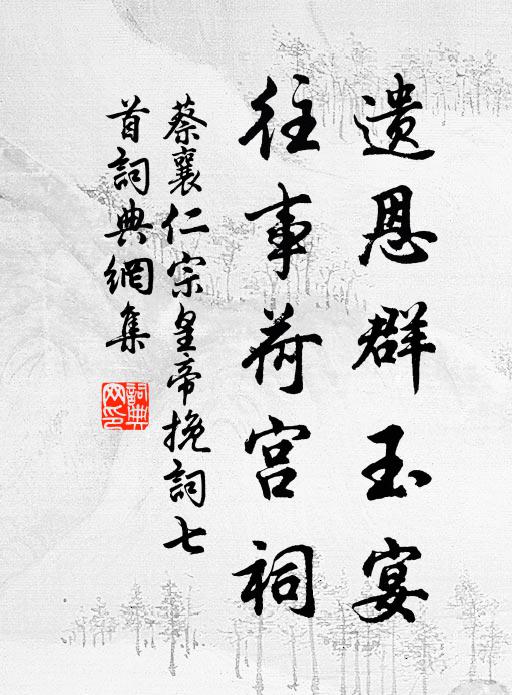 遗恩群玉宴
往事荷宫祠
蔡襄仁宗皇帝挽詞七
首詞典網集
詞典
网印